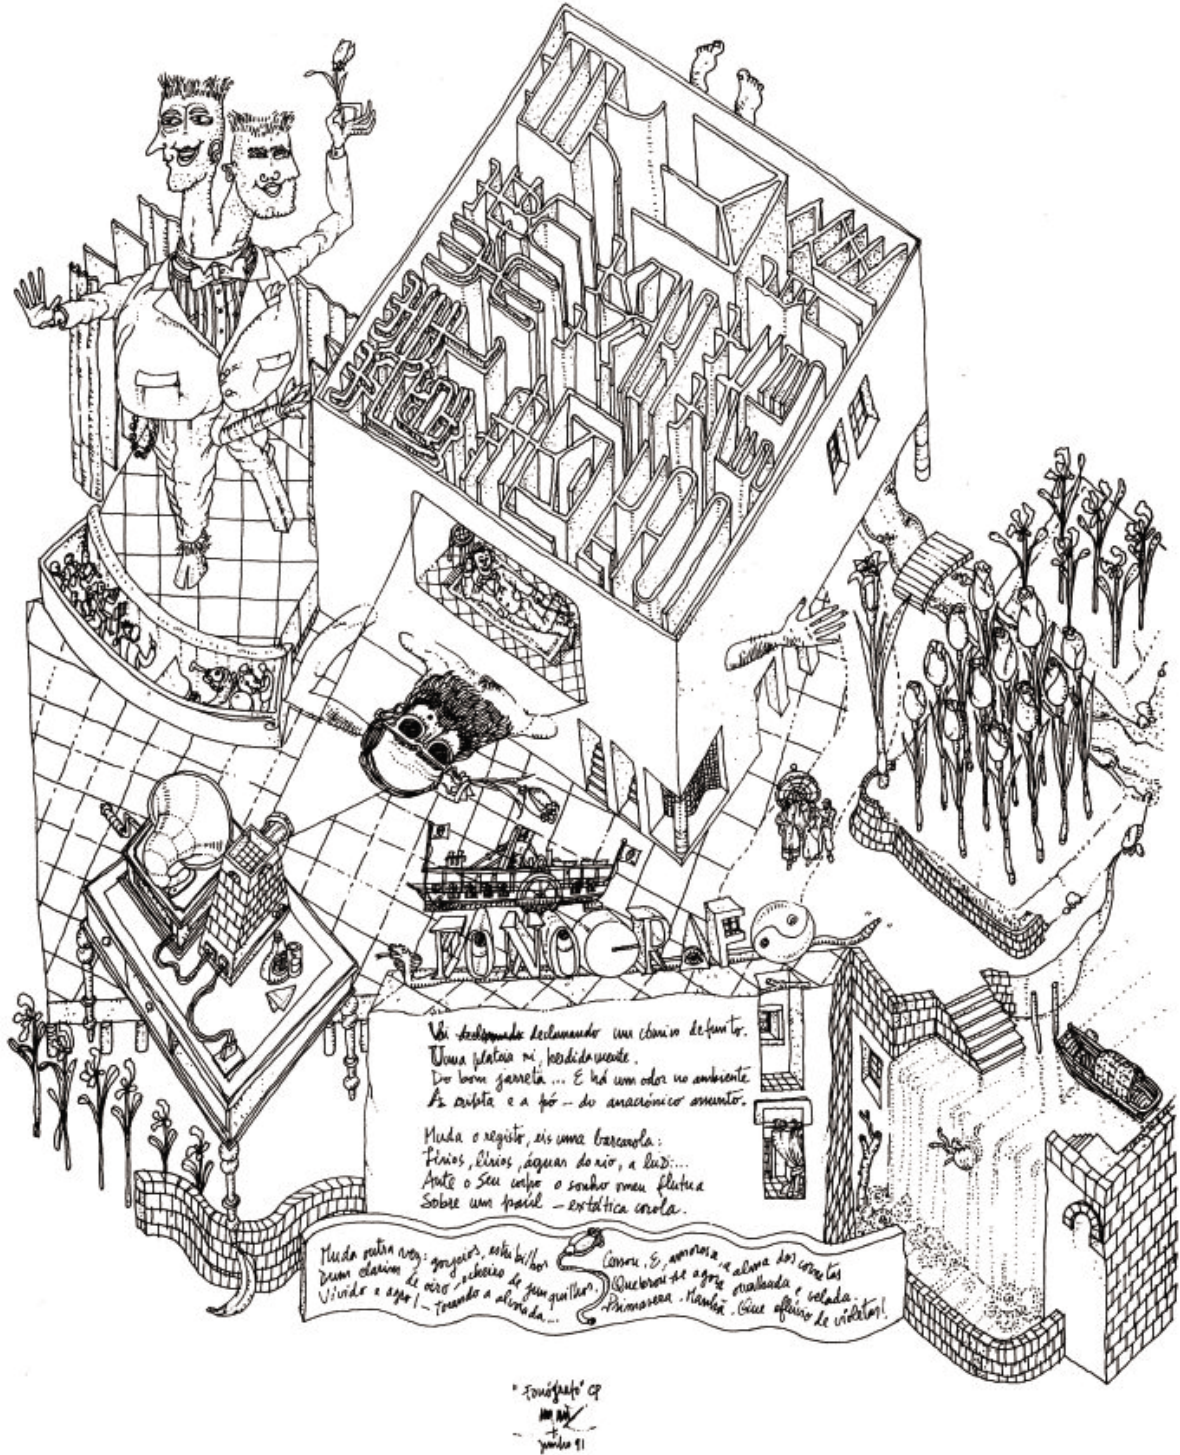 FONÓGRAFO
Vai declamando um cómico defunto.
Uma plateia ri, perdidamente.
Do bom jarreta ... E há um odor no ambiente
A cripta e a pó – do anacrónico assunto.
Muda o registo, eis uma barcarola:
Lírios, lírios, águas do rio, a lua...
Ante o Seu corpo o sonho meu flutua
Sobre um paúl – extática corola.
Muda outra vez: gorjeios, estribilhos
Dum clarim de oiro – o cheiro de junquilhos.
Vívido e agro! – tocando a alvorada...
Cessou. E, amorosa, a alma das cornetas
Quebrou-se agora orvalhada e velada.
Primavera. Manhã. Que eflúvio de violetas!
"Fonógrafo" CP
junho 91